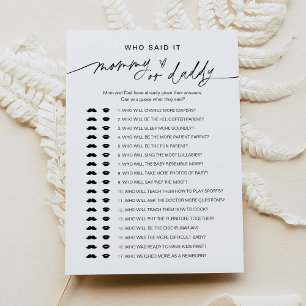 WHO SAID IT
mommy or daddy
Mom and Dad have already given their answers.
Can you guess what they said?
1. WHO WILL CHANGE MORE DIAPERS?
2. WHO WILL BE THE HELICOPTER PARENT?
3. WHO WILL SLEEP MORE SOUNDLY?
4. WHO WILL BE THE MORE PATIENT PARENT?
5. WHO WILL BE THE FUN PARENT?
6. WHO WILL SING THE MOST LULLABIES?
7. WHO WILL THE BABY RESEMBLE MORE?
8. WHO WILL TAKE MORE PHOTOS OF BABY?
9. WHO WILL SAY "NO" THE MOST?
10. WHO WILL TEACH THEM HOW TO PLAY SPORTS?
11. WHO WILL ASK THE DOCTOR MORE QUESTIONS?
12. WHO WILL TEACH THEM HOW TO COOK?
13. WHO WILL PUT THE FURNITURE TOGETHER?
14. WHO WILL BE THE DISCIPLINARIAN?
15. WHO WAS THE MORE DIFFICULT BABY?
16. WHO WAS READY TO HAVE KIDS FIRST?
17. WHO WEIGHED MORE AS A NEWBORN?